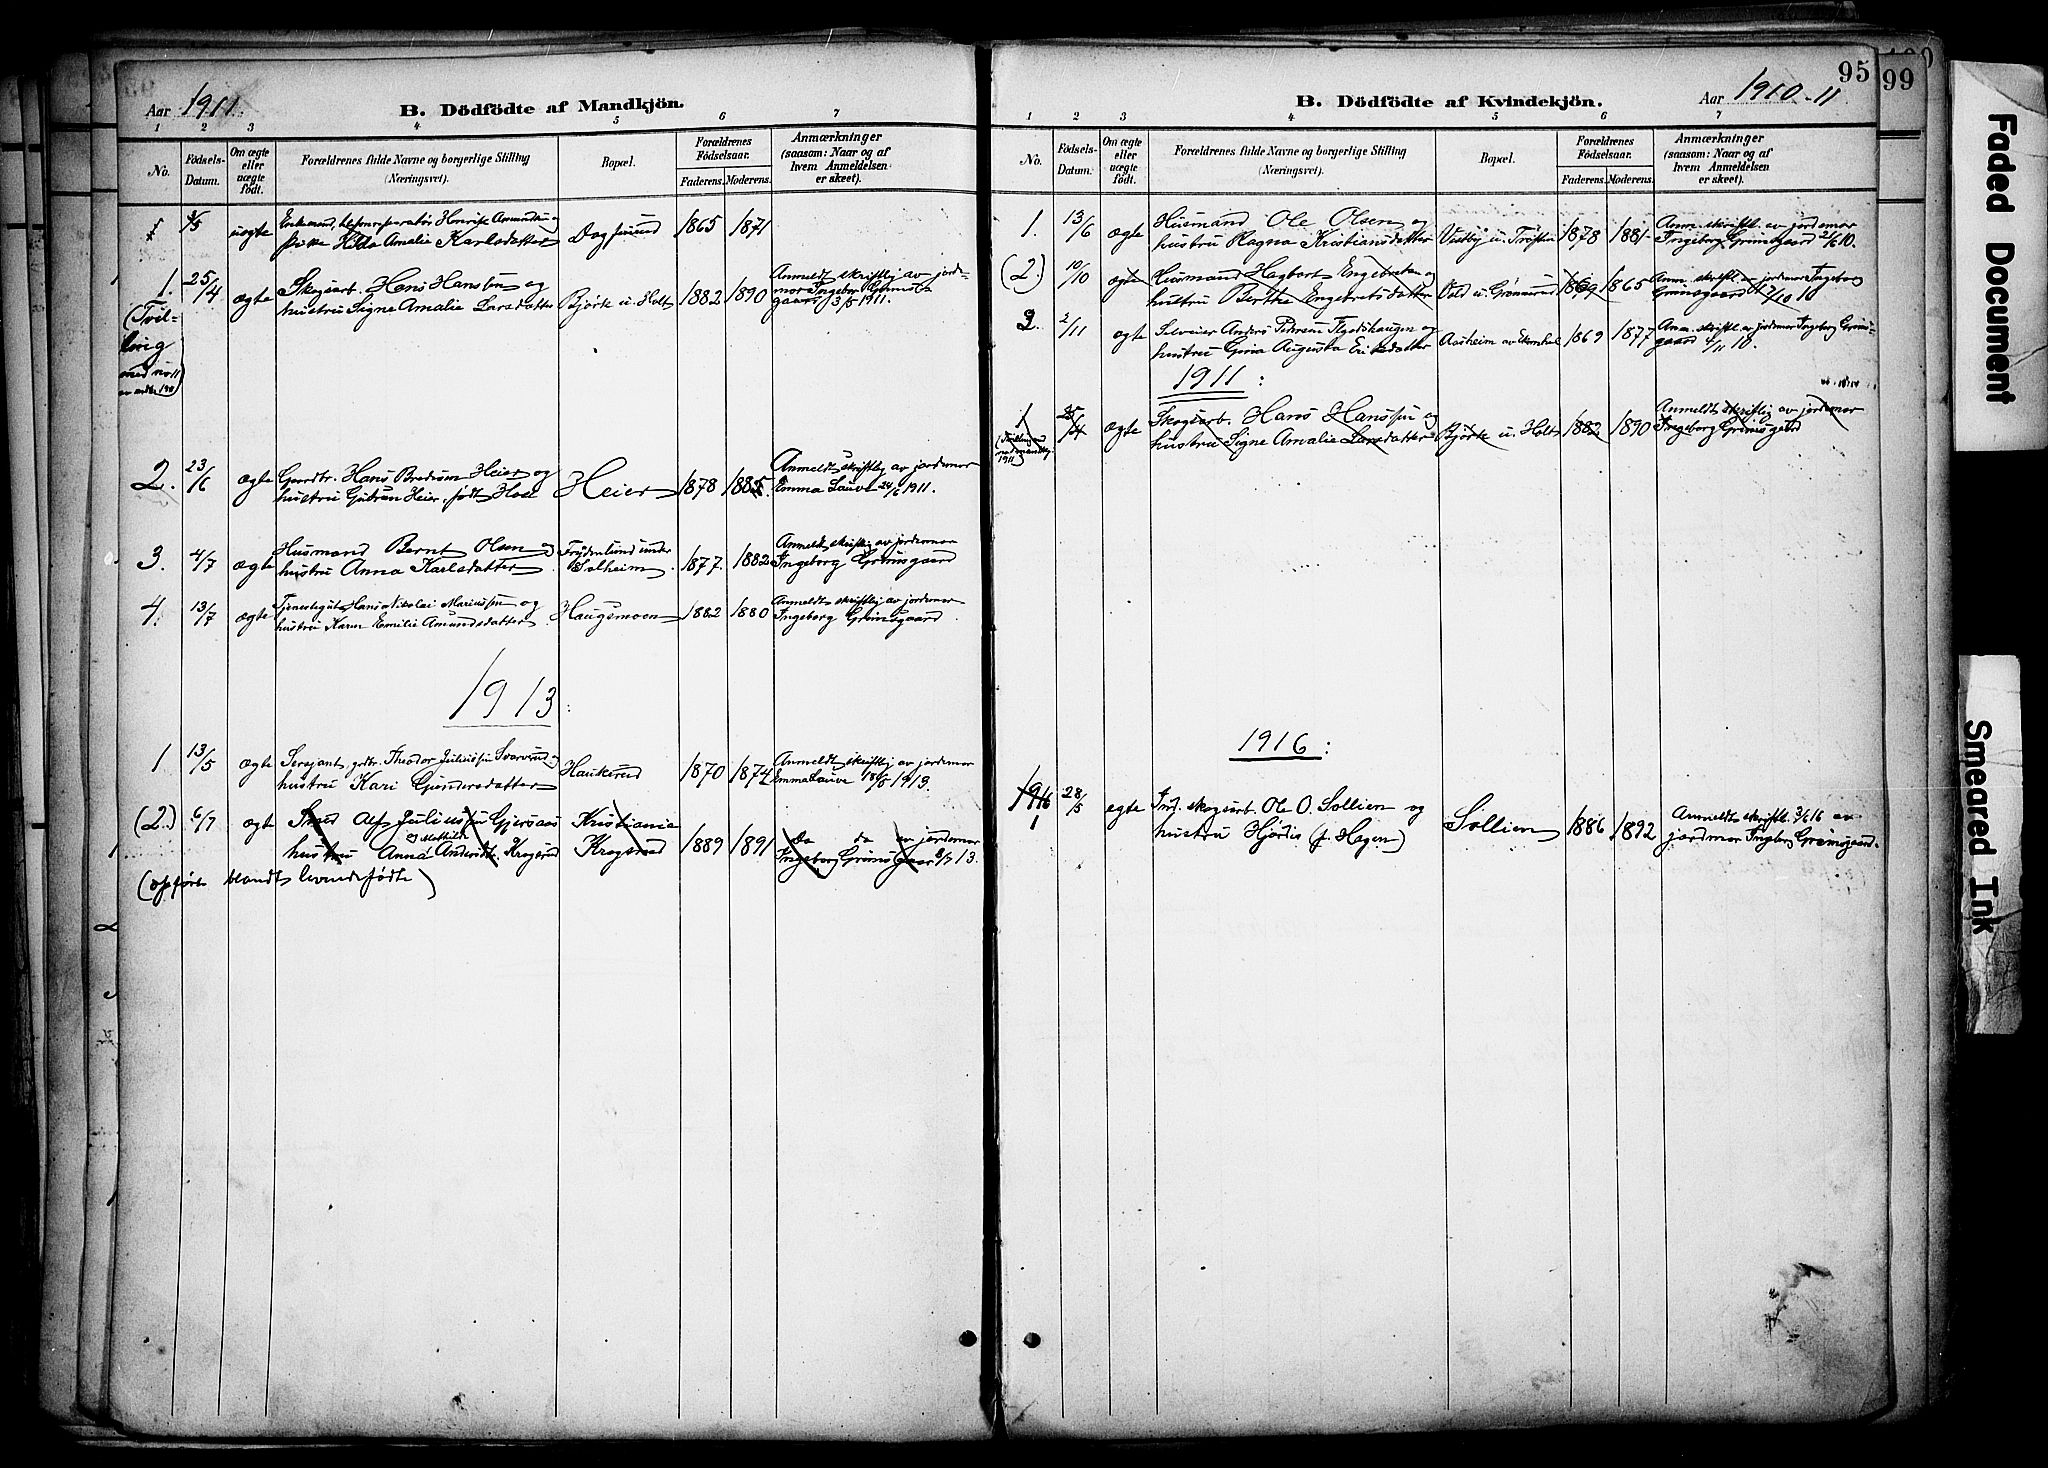 Aar 1911.
B. Dödfödte af Mandkjön.
1 2 3 4 5 6 7
No.
Födsels-
Datum.
Om ægte
eller
uægte
födt.
Forældrenes fulde Navne og borgerlige Stilling
(Næringsvei).
Bopæl.
Forældrenes
Födselsaar.
Faderens. Moderens.
Anmærkninger
(saasom: Naar og af
hvem Anmeldelsen
er skeet).
uægte
pike Hilda Amalie Karlsdatter 1865 1871
1. 25/4 ægte Skogsarb. Hans Hanssen og
hustru Signe Amalie Larsdatter Bjørke u. Holt 1882 1890
Anmeldt skriftlig av jorde-
mor Ingebor Grims-
gaard 13/5 1911.
(Tvil-
ling
med no 11
2. 23/6 ægte Gaardbr. Hans Heier og
hustru Gudrun Heier, født Heier 1878 1885.
Anmeldt skriftlig av jordemor
Emma Lauve 24/6 1911.
3. 4/7 ægte Husmand Bernt Olsen og
hustru Anna Karlsdatter Frydenlund under
Solheim 1877. 1882
Anmeldt skriftlig av jordemor
Ingeborg Grimsgaard
4. 13/7 ægte Tjenestegut Hans Nikolai Mariussen og
hustru Karen Emilie Amundsdatter Haugsmoen 1882 1880
Anmeldt skriftlig av jordemor
Ingeborg Grimsgaard
1913:
1 13/5 ægte Sersjant, grdbr. Theodor Juliussen Svarverud og
hustru Kari Gundersdatter Haukerud 1870 1874
Anmeldt skriftlig av jordemor
Emma Lauve 18/5 1913.
(2.) 6/7 ægte Smed Alf Juliussen Gjersaas
og Mathilde
hustru Anna Andersdt. Krogsrud
Kristiania
Krogsrud 1889 1891
da da av jordemor
Ingeborg Grimsgaard 8/7 13.
(opført blandt levendefødte)
95
99
B. Dödfödte af Kvindekjön.
Aar 1910-11
1 2 3 4 5 6 7
No.
Födsels-
Datum.
Om ægte
eller
uægte
födt.
Forældrenes fulde Navne og borgerlige Stilling
(Næringsvei).
Bopæl.
Forældrenes
Födselsaar.
Faderens. Moderens.
Anmærkninger
(saasom: Naar og af
hvem Anmeldelsen
er skeet).
1. 13/6 ægte Husmand Ole Olsen og
hustru Ragna Kristiansdatter Vestby u. 1878 1881
Anm. skriftl. av jordemor
Ingeborg Grimsgaard 21/6 10.
(2.) 10/10 ægte Husmand Hagbart Engebretsen og
hustru Berthe Engebretsdatter Vold u. Grønerud 1869 1865
Anm. skriftl. av jordemor Ingeborg
Grimsgaard 10
2. 2/11 ægte Anders Pedersen og
hustru Gina Augusta Eriksdatter 1869 1877
Anm. skriftl. av jordemor Ingeborg Grims-
gaard 4/11 10.
1911:
1 25/4 ægte Skogsarb. Hans Hanssen og
hustru Signe Amalie Larsdatter Bjørke u. Holt 1882 1890
Anmeldt skriftlig av jordemor
Ingeborg Grimsgaard
1916:
1916
1 28/5 egte Ind. skogsarb. Ole O. Sollien og
hustru Hjørdis (f. Hagen) Sollien 1886 1892
Anmeldt skriftl. 3/6 16 av
jordmor Ingeborg Grimsgaard
Faded Document
Smeared Ink